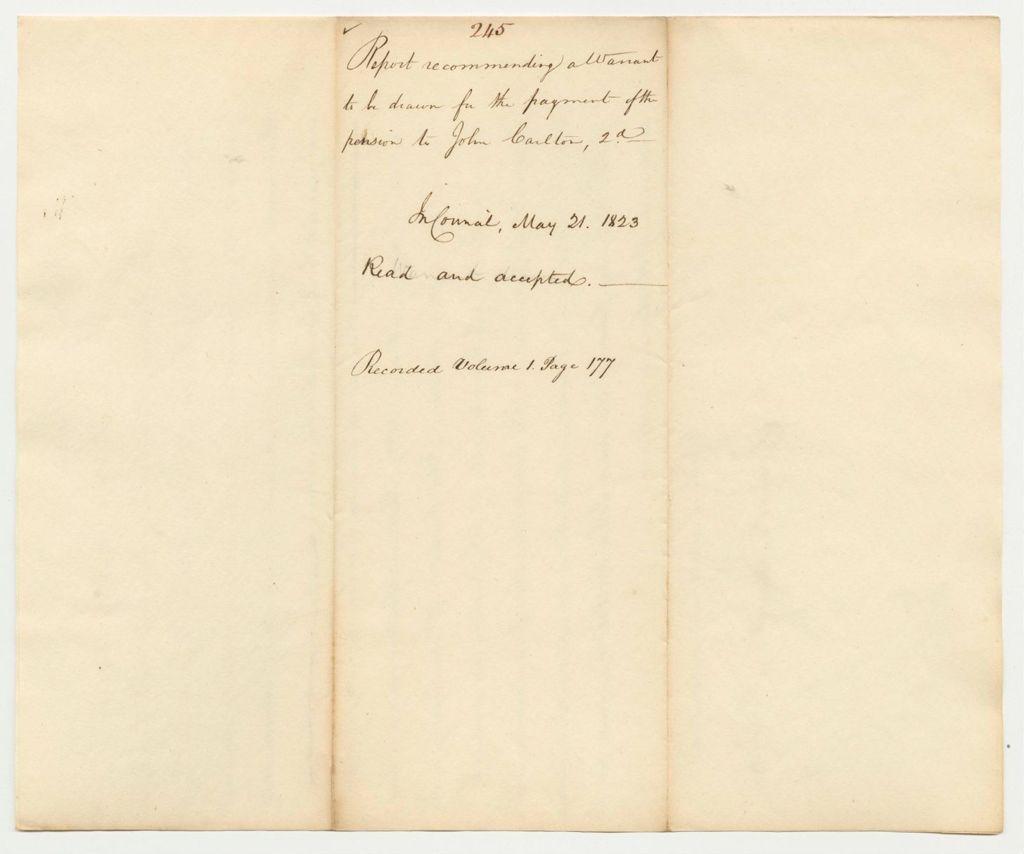 245
Report recommending a Warrant
to be drawn for the payment of the
pension to John Carlton, 2d
In Council, May 21. 1823
Read and accepted.
Recorded Volume 1. Page 177